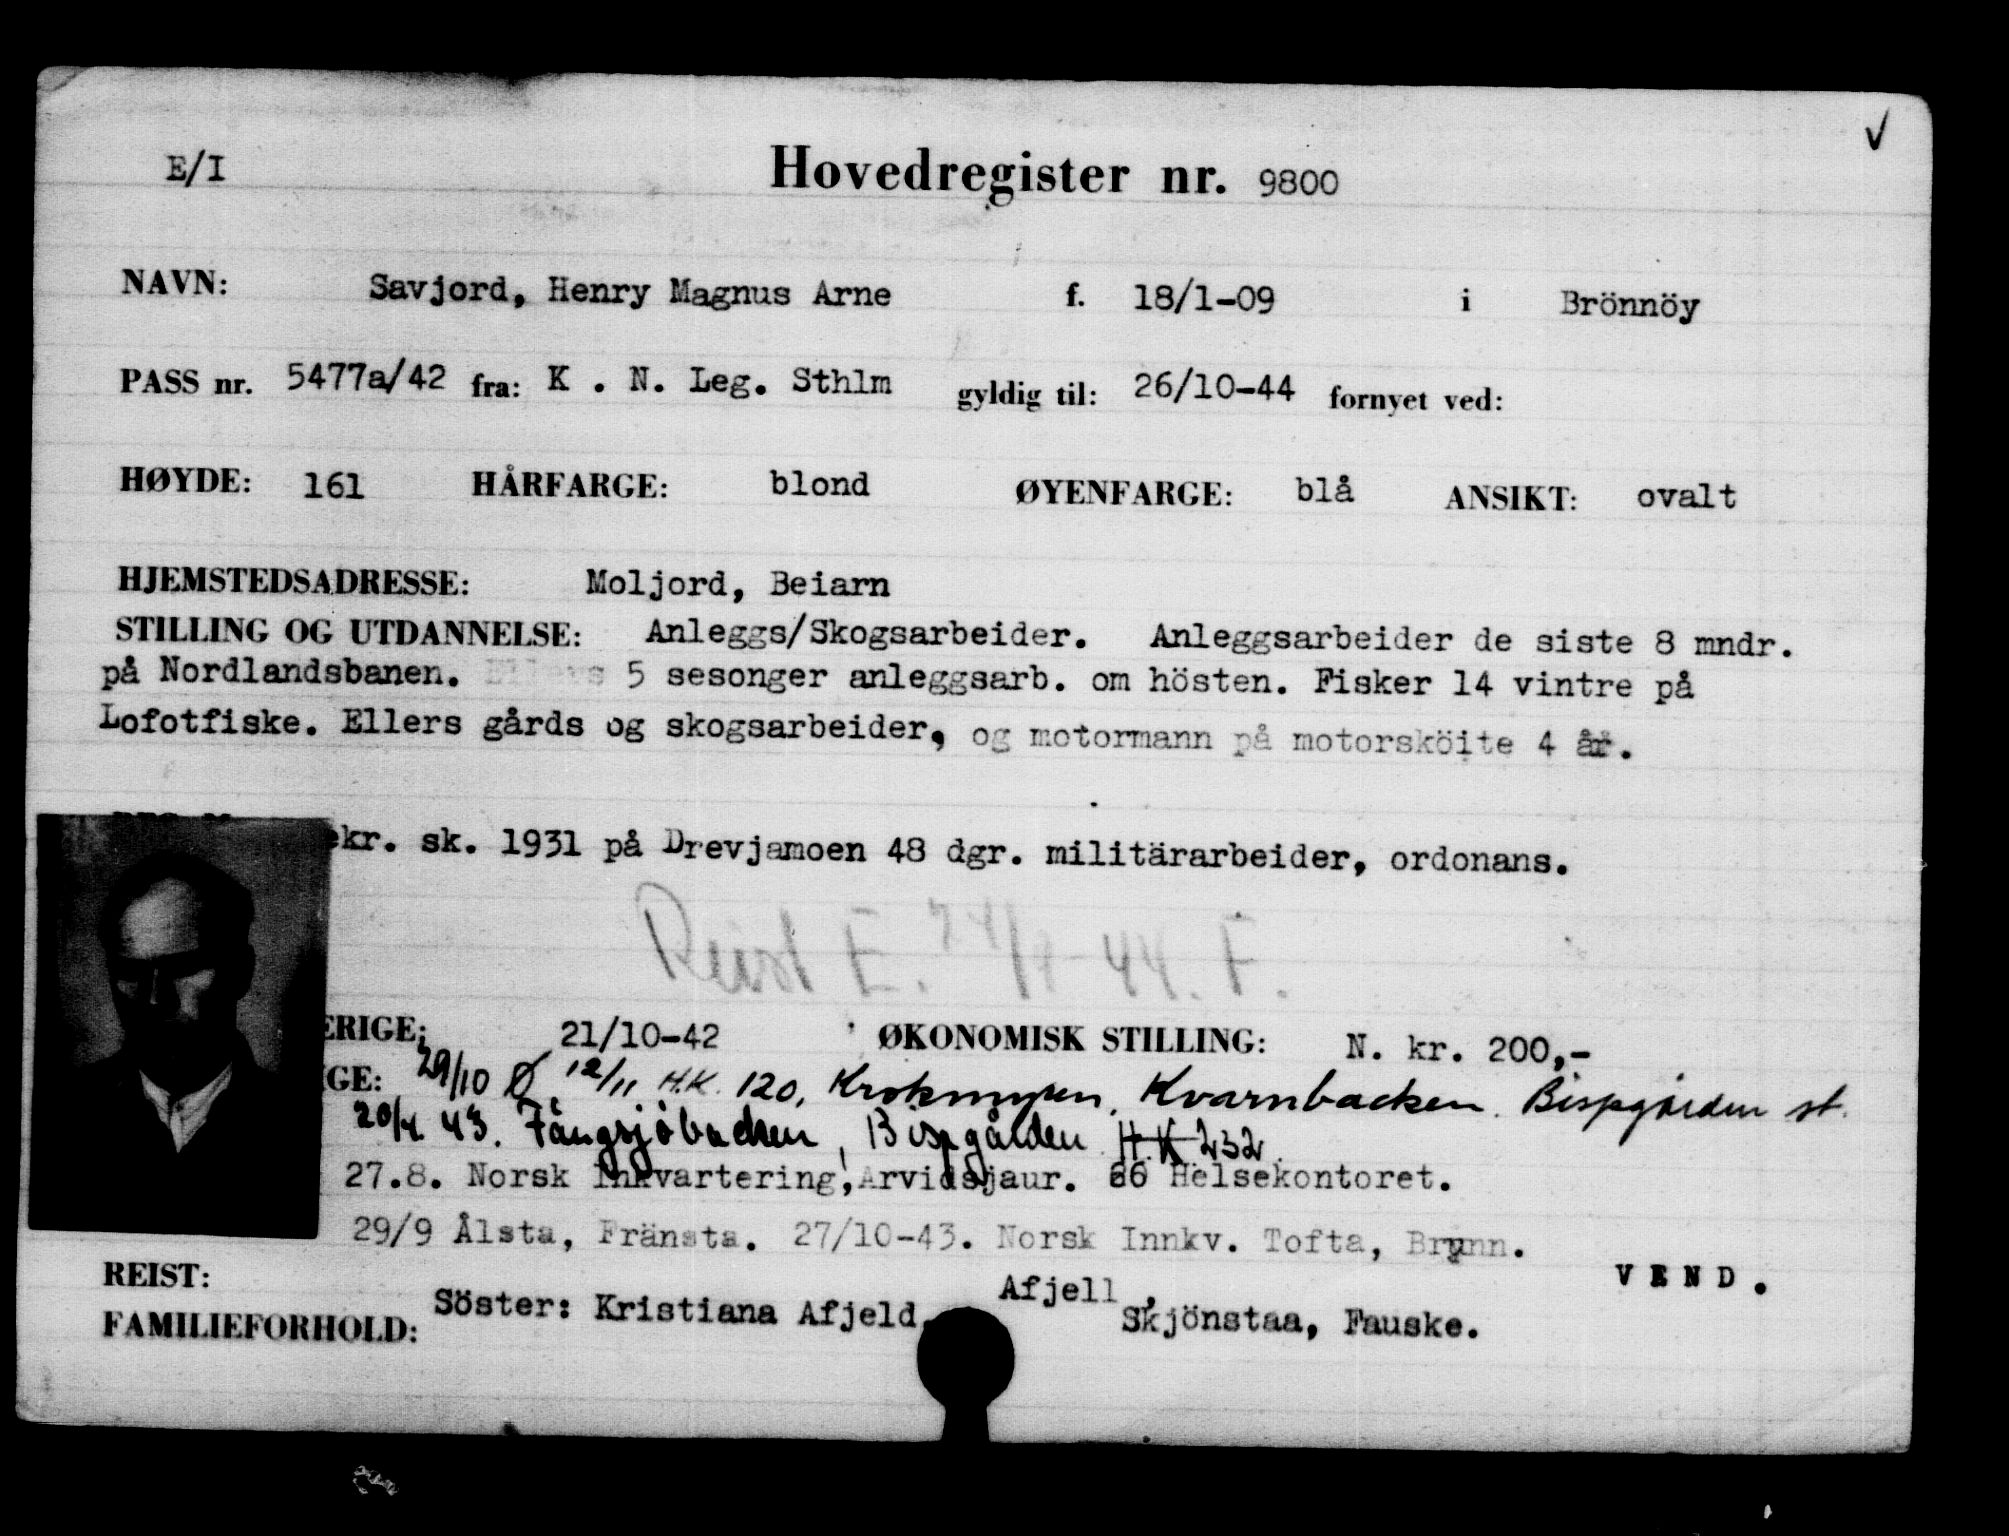 E/I Hovedregister nr. 9800
NAVN: Savjord, Henry Magnus Arne f. 18/1-09 i Brönnöy
PASS nr. 5477a/42 fra: K . N. Leg. Sthlm gyldig til: 26/10-44 fornyet ved:
HØYDE: 161 HÅRFARGE: blond ØYENFARGE: blå ANSIKT: ovalt
HJEMSTEDSADRESSE: Moljord, Beiarn
STILLING OG UTDANNELSE: Anleggs/Skogsarbeider. Anleggsarbeider de siste 8 mndr.
på Nordlandsbanen. 5 sesonger anleggsarb. om hösten. Fisker 14 vintre på
Lofotfiske. Ellers gårds og skogsarbeider, og motormann på motorsköite 4 år.
ekr. sk. 1931 på Drevjamoen 48 dgr. militärarbeider, ordonans.
Reist E. -44. F.
ERIGE: 21/10-42 ØKONOMISK STILLING: N. kr. 200,-
GE: 29/10 Ø 12/11 H.K. 120, Krokmyren, Kvarnbacken. Bispgården st.
20/4 43. Fångsjöbacken, Bispgården H.K 232.
27.8. Norsk Innkvartering, Arvidsjaur. 66 Helsekontoret.
29/9 Ålsta, Fränsta. 27/10-43. Norsk Innkv. Tofta, Brynn.
REIST: VEND.
Afjell,
FAMILIEFORHOLD: Söster: Kristiana Afjeld, Skjönstaa, Fauske.